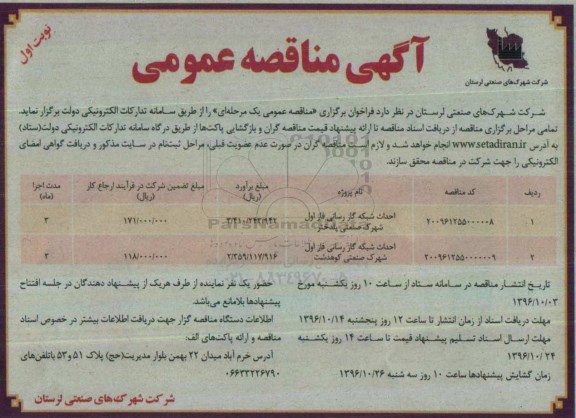 نوبت اول
آگهی مناقصه عمومی
شرکت شهرک‌های صنعتی لرستان
شرکت شهرک‌های صنعتی لرستان در نظر دارد فراخوان برگزاری «مناقصه عمومی یک مرحله‌ای» را از طریق سامانه تدارکات الکترونیکی دولت برگزار نماید.
تمامی مراحل برگزاری مناقصه از دریافت اسناد مناقصه تا ارائه پیشنهاد قیمت مناقصه گران و بازگشایی پاکت‌ها از طریق درگاه سامانه تدارکات الکترونیکی دولت(ستاد)
به آدرس www.setadiran.ir انجام خواهد شد و لازم است مناقصه گران در صورت عدم عضویت قبلی، مراحل ثبت‌نام در سایت مذکور و دریافت گواهی امضای
الکترونیکی را جهت شرکت در مناقصه محقق سازند.
ردیف کد مناقصه نام پروژه مبلغ برآورد (ریال) مبلغ تضمین شرکت در فرآیند ارجاع کار (ریال) مدت اجرا (ماه)
۱ ۲۰۰۹۶۱۲۵۵۰۰۰۰۰۸ احداث شبکه گاز رسانی فاز اول شهرک صنعتی پلدختر ۳/۴۱۰/۲۴۳/۹۴۲ ۱۷۱/۰۰۰/۰۰۰ ۳
۲ ۲۰۰۹۶۱۲۵۵۰۰۰۰۰۹ احداث شبکه گاز رسانی فاز اول شهرک صنعتی کوهدشت ۲/۳۵۹/۱۱۷/۹۱۶ ۱۱۸/۰۰۰/۰۰۰ ۳
تاریخ انتشار مناقصه در سامانه ستاد از ساعت ۱۰ روز یکشنبه مورخ
۱۳۹۶/۱۰/۰۳
مهلت دریافت اسناد از زمان انتشار تا ساعت ۱۲ روز پنجشنبه ۱۳۹۶/۱۰/۱۴
مهلت ارسال اسناد تسلیم پیشنهاد قیمت تا ساعت ۱۴ روز یکشنبه
۱۳۹۶/۱۰/۲۴
زمان گشایش پیشنهادها ساعت ۱۰ روز سه شنبه ۱۳۹۶/۱۰/۲۶
حضور یک نفر نماینده از طرف هریک از پیشنهاد دهندگان در جلسه افتتاح
پیشنهادها بلامانع می‌باشد.
اطلاعات دستگاه مناقصه گزار جهت دریافت اطلاعات بیشتر در خصوص اسناد
مناقصه و ارائه پاکت‌های الف:
آدرس خرم آباد میدان ۲۲ بهمن بلوار مدیریت(حج) پلاک ۵۱ و ۵۳ باتلفن‌های
۰۶۶۳۳۲۲۶۷۹۰
شرکت شهرک‌های صنعتی لرستان